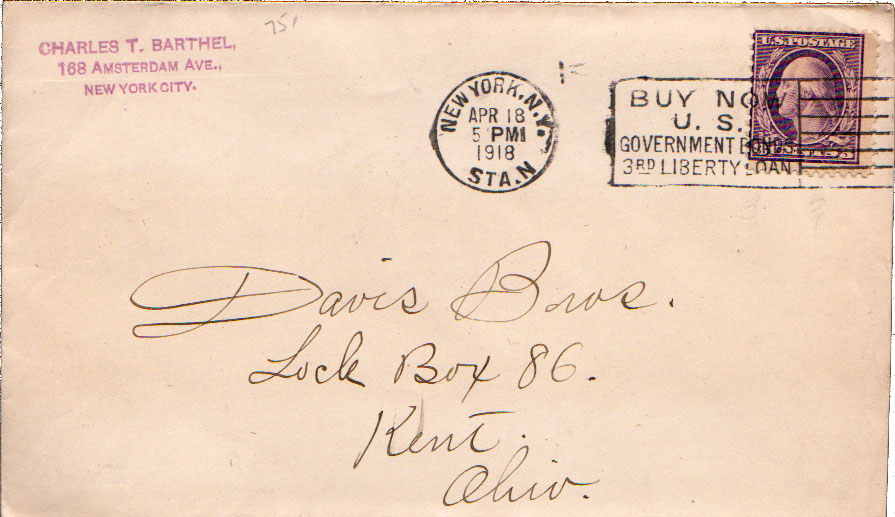 75¢
CHARLES T. BARTHEL,
168 AMSTERDAM AVE.,
NEW YORK CITY.
NEW YORK, N.Y.
APR 18
5 PM
1918
STA. N
BUY NOW
U. S.
GOVERNMENT BONDS
3RD LIBERTY LOAN
U.S. POSTAGE
Davis Bros.
Lock Box 86.
Kent.
Ohio.